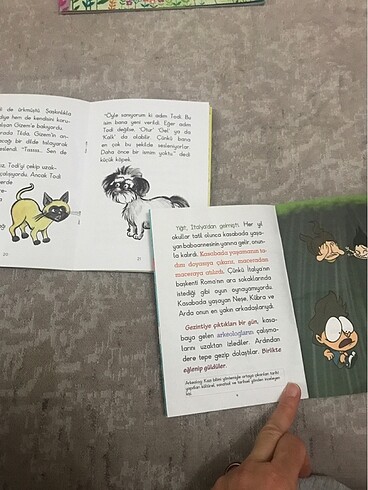 de ürkmüştü. Şaşkınlıkla
diye hem de kendisini koru-
Gizem'e bakıyordu.
rada Tilda, Gizem'in an-
bir dille tıslayarak
"Tıssss... Sen de
Todi'yi çekip uzak-
çalışıyordu. Ancak Todi
20
"Öyle sanıyorum ki adım Todi. Bu
isim bana yeni verildi. Eğer adım
Todi değilse "Otur" "Gel" ya da
"Kalk" da olabilir. Çünkü bana
en çok bu şekilde sesleniyorlar.
Daha önce bir ismim yoktu." dedi
küçük köpek.
21
Yiğit, İtalya'dan gelmişti. Her yıl
okullar tatil olunca kasabada yaşa-
yan babaannesinin yanına gelir, onun-
la kalırdı. Kasabada yaşamanın ta-
dını doyasıya çıkarır, maceradan
maceraya atılırdı. Çünkü İtalya'nın
başkenti Roma'nın ara sokaklarında
istediği gibi oyun oynayamıyordu.
Kasabada yaşayan Neşe, Kübra ve
Arda onun en yakın arkadaşlarıydı.
Gezintiye çıktıkları bir gün, kasa-
baya gelen arkeologların çalışma-
larını uzaktan izlediler. Ardından
dere tepe gezip dolaştılar. Birlikte
eğlenip güldüler.
Arkeolog: Kazı bilimi yöntemiyle ortaya çıkarılan tarihî
yapıtları kültürel, sanatsal ve tarihsel yönden inceleyen